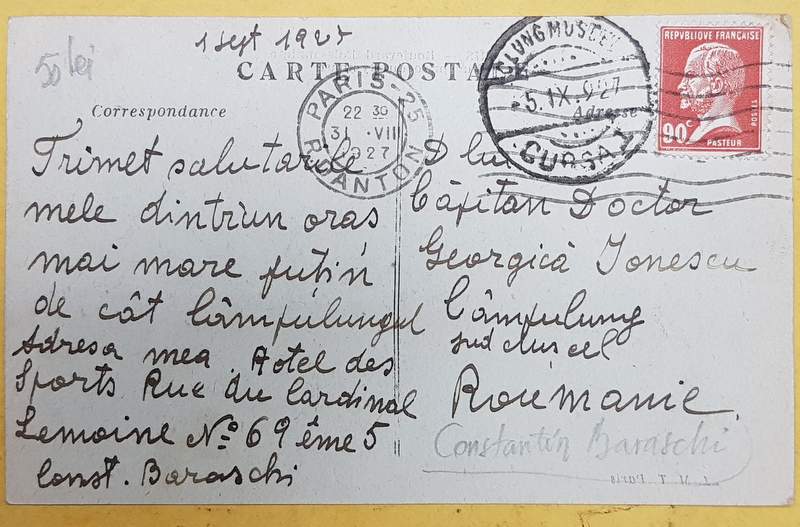 1 sept 1927
50 lei
CARTE POSTALE
Correspondance
Adresse
PARIS-25
22 30
31 ·VII
1927
R. DANTON
CLUNG MUSCEL
5.IX.927
CURSA 1
REPUBLIQUE FRANÇAISE
90c
POSTES
PASTEUR
Trimet salutările
mele dintr'un oraș
mai mare puțin
de cât Câmpulungul
Adresa mea Hotel des
Sports Rue du Cardinal
Lemoine No 69 ème 5
Const. Baraschi
D lui
Căpitan Doctor
Georgică Ionescu
Câmpulung
jud Muscel
Roumanie
Constantin Baraschi
L. M. T. Paris